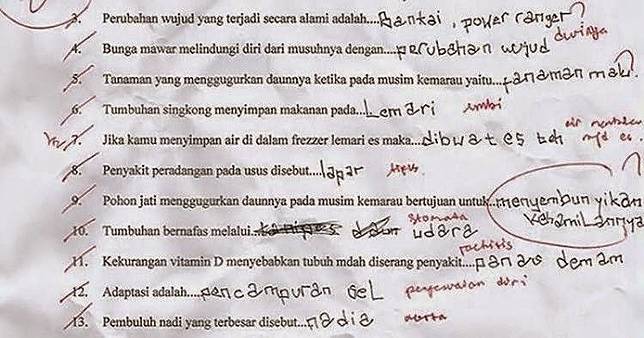 3. Perubahan wujud yang terjadi secara alami adalah....Bantai, power ranger ?
4. Bunga mawar melindungi diri dari musuhnya dengan....perubahan wujud durinya
5. Tanaman yang menggugurkan daunnya ketika pada musim kemarau yaitu....tanaman mati. ?
6. Tumbuhan singkong menyimpan makanan pada....Lemari umbi
7. Jika kamu menyimpan air di dalam frezzer lemari es maka....dibuat es teh air
8. Penyakit peradangan pada usus disebut....lapar tipus.
9. Pohon jati menggugurkan daunnya pada musim kemarau bertujuan untuk..menyembunyikan kehamilannya
10. Tumbuhan bernafas melalui.. udara stomata
11. Kekurangan vitamin D menyebabkan tubuh mdah diserang penyakit....panas demam rachitis
12. Adaptasi adalah....pencampuran GeL penyesuaian diri
13. Pembuluh nadi yang terbesar disebut....nadia aorta